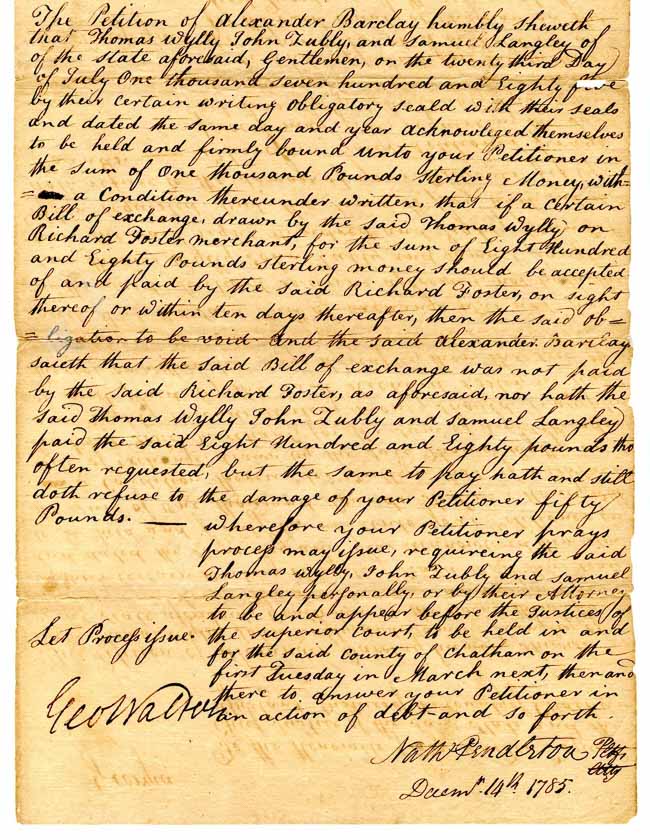 The Petition of Alexander Barclay humbly sheweth
that Thomas Wylly John Zubly, and Samuel Langley of
of the state aforesaid, Gentlemen, on the twenty third Day
of July One thousand seven hundred and Eighty five
by their certain writing obligatory seald with their seals
and dated the same day and year acknowleged themselves
to be held and firmly bound unto your Petitioner in
the sum of One thousand Pounds sterling Money, with=
= a Condition thereunder written, that if a certain
Bill of exchange, drawn by the said Thomas Wylly on
Richard Foster merchant, for the sum of Eight Hundred
and Eighty Pounds sterling money should be accepted
of and paid by the said Richard Foster, on sight
thereof or within ten days thereafter, then the said ob=
=ligation to be void and the said Alexander Barclay
saieth that the said Bill of exchange was not paid
by the said Richard Foster, as aforesaid, nor hath the
said Thomas Wylly John Zubly and Samuel Langley
paid the said Eight Hundred and Eighty pounds tho
often requested, but the same to pay hath and still
doth refuse to the damage of your Petitioner fifty
Pounds. —
Wherefore your Petitioner prays
process may issue, requireing the said
Thomas Wylly, John Zubly and Samuel
Langley personally, or by their Attorney
to be and appear before the Justices of
the superior court, to be held in and
for the said county of Chatham on the
first Tuesday in March next, then and
there to answer your Petitioner in
an action of debt and so forth.
Let Process issue.
Geo Walton
Nath Pendleton Petrs
Atty
Decemr. 14th. 1785.